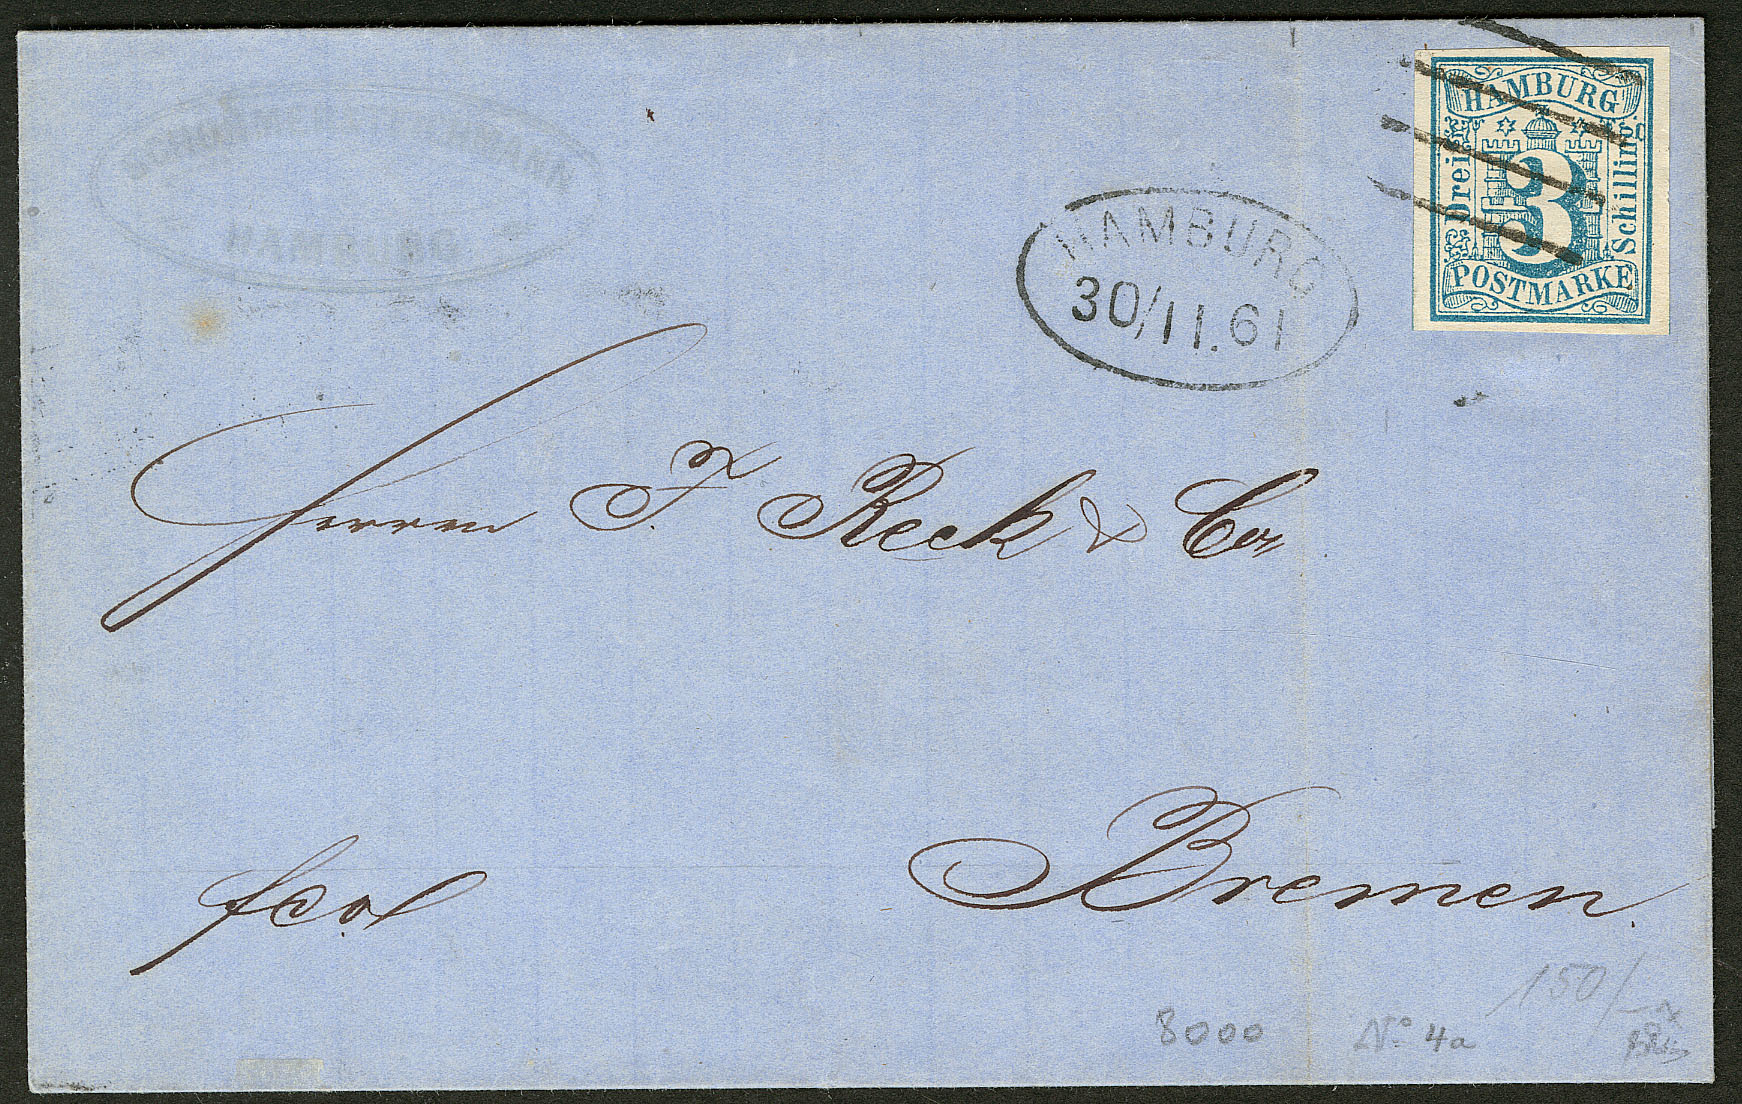 HAMBURG
Drei
3
Schilling
POSTMARKE
HAMBURG
30/11.61
HAMBURG
Herrn F. Reck & Co
fco.
Bremen.
150/-
8000 No 4a